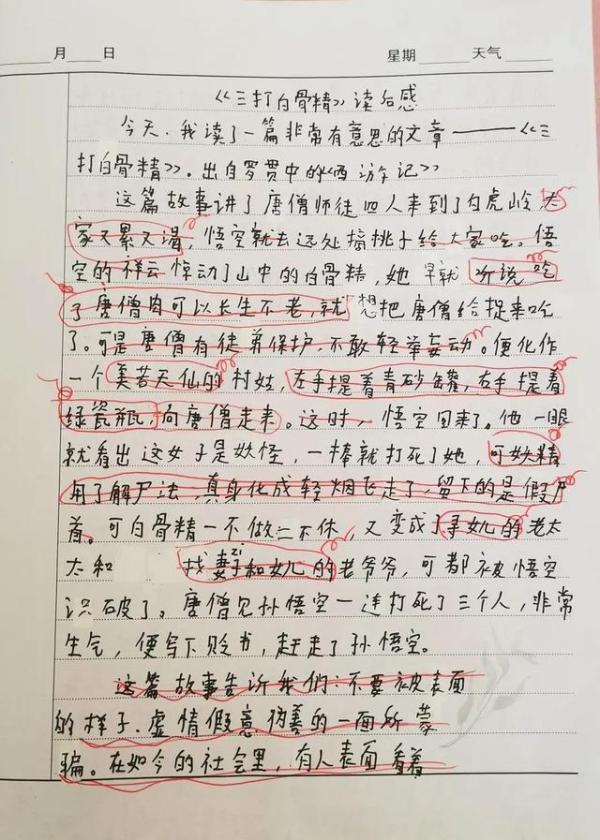 月 日 星期 天气
《三打白骨精》读后感
今天,我读了一篇非常有意思的文章——《三
打白骨精》。出自罗贯中的《西游记》
这篇故事讲了唐僧师徒四人来到了白虎岭,大
家又累又渴,悟空就去远处摘桃子给大家吃。悟
空的祥云惊动了山中的白骨精,她早就听说吃
了唐僧肉可以长生不老,就想把唐僧给捉来吃
了。可是唐僧有徒弟保护,不敢轻举妄动。便化作
一个美若天仙的村姑,左手提着青砂罐,右手提着
绿瓷瓶,向唐僧走来。这时,悟空回来了。他一眼
就看出这女子是妖怪,一棒就打死了她,可妖精
用了解尸法,真身化成轻烟飞走了,留下的是假尸
首。可白骨精一不做二不休,又变成了寻女儿的老太
太和 找妻子和女儿的老爷爷,可都被悟空
识破了。唐僧见孙悟空一连打死了三个人,非常
生气,便写下贬书,赶走了孙悟空。
这篇故事告诉我们:不要被表面
的样子、虚情假意,伪善的一面所蒙
骗。在如今的社会里,有人表面看着